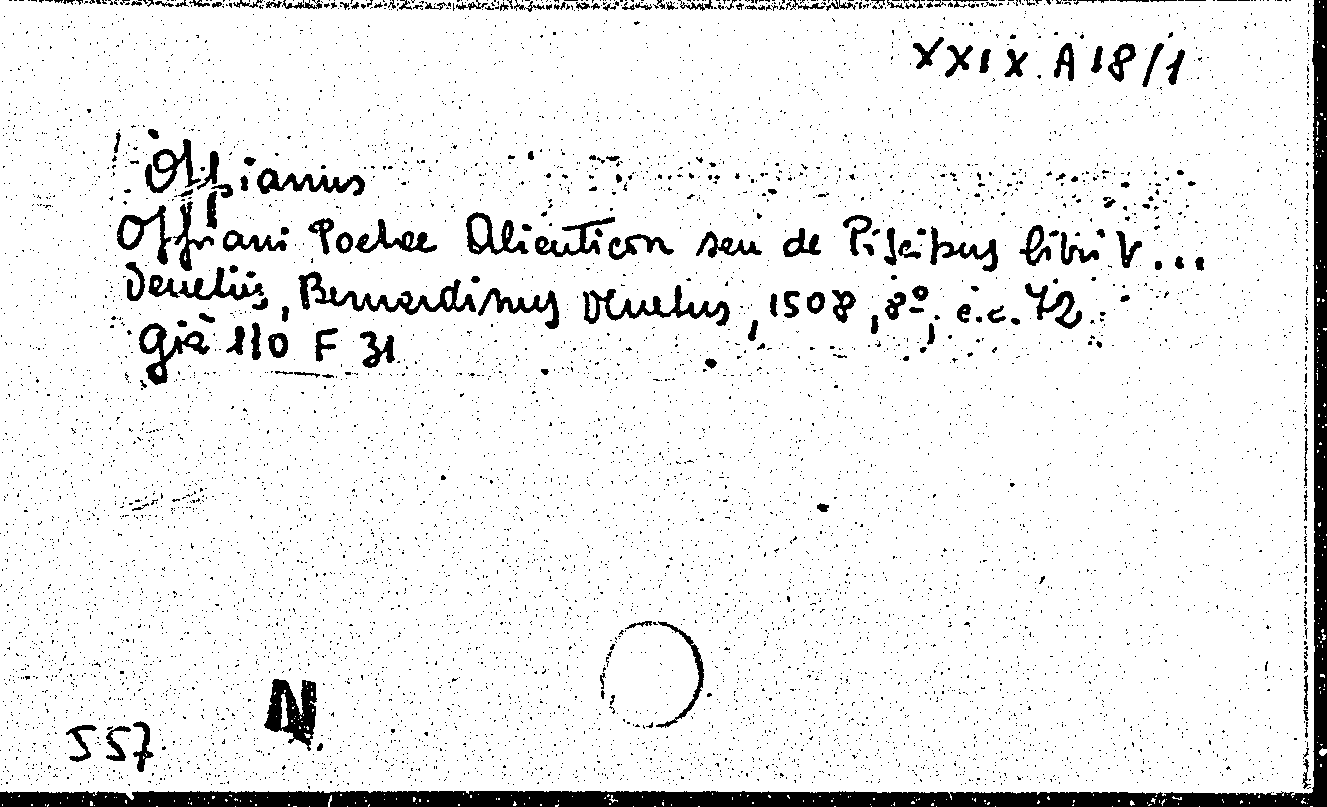 XXIX A 18/1
Oppianus
Oppiani Poetae Alieuticon seu de Piscibus libri V...
Venetiis, Bernardinus Venetus, 1508, 8º, c.c. 72
Già 110 F 31
N
557